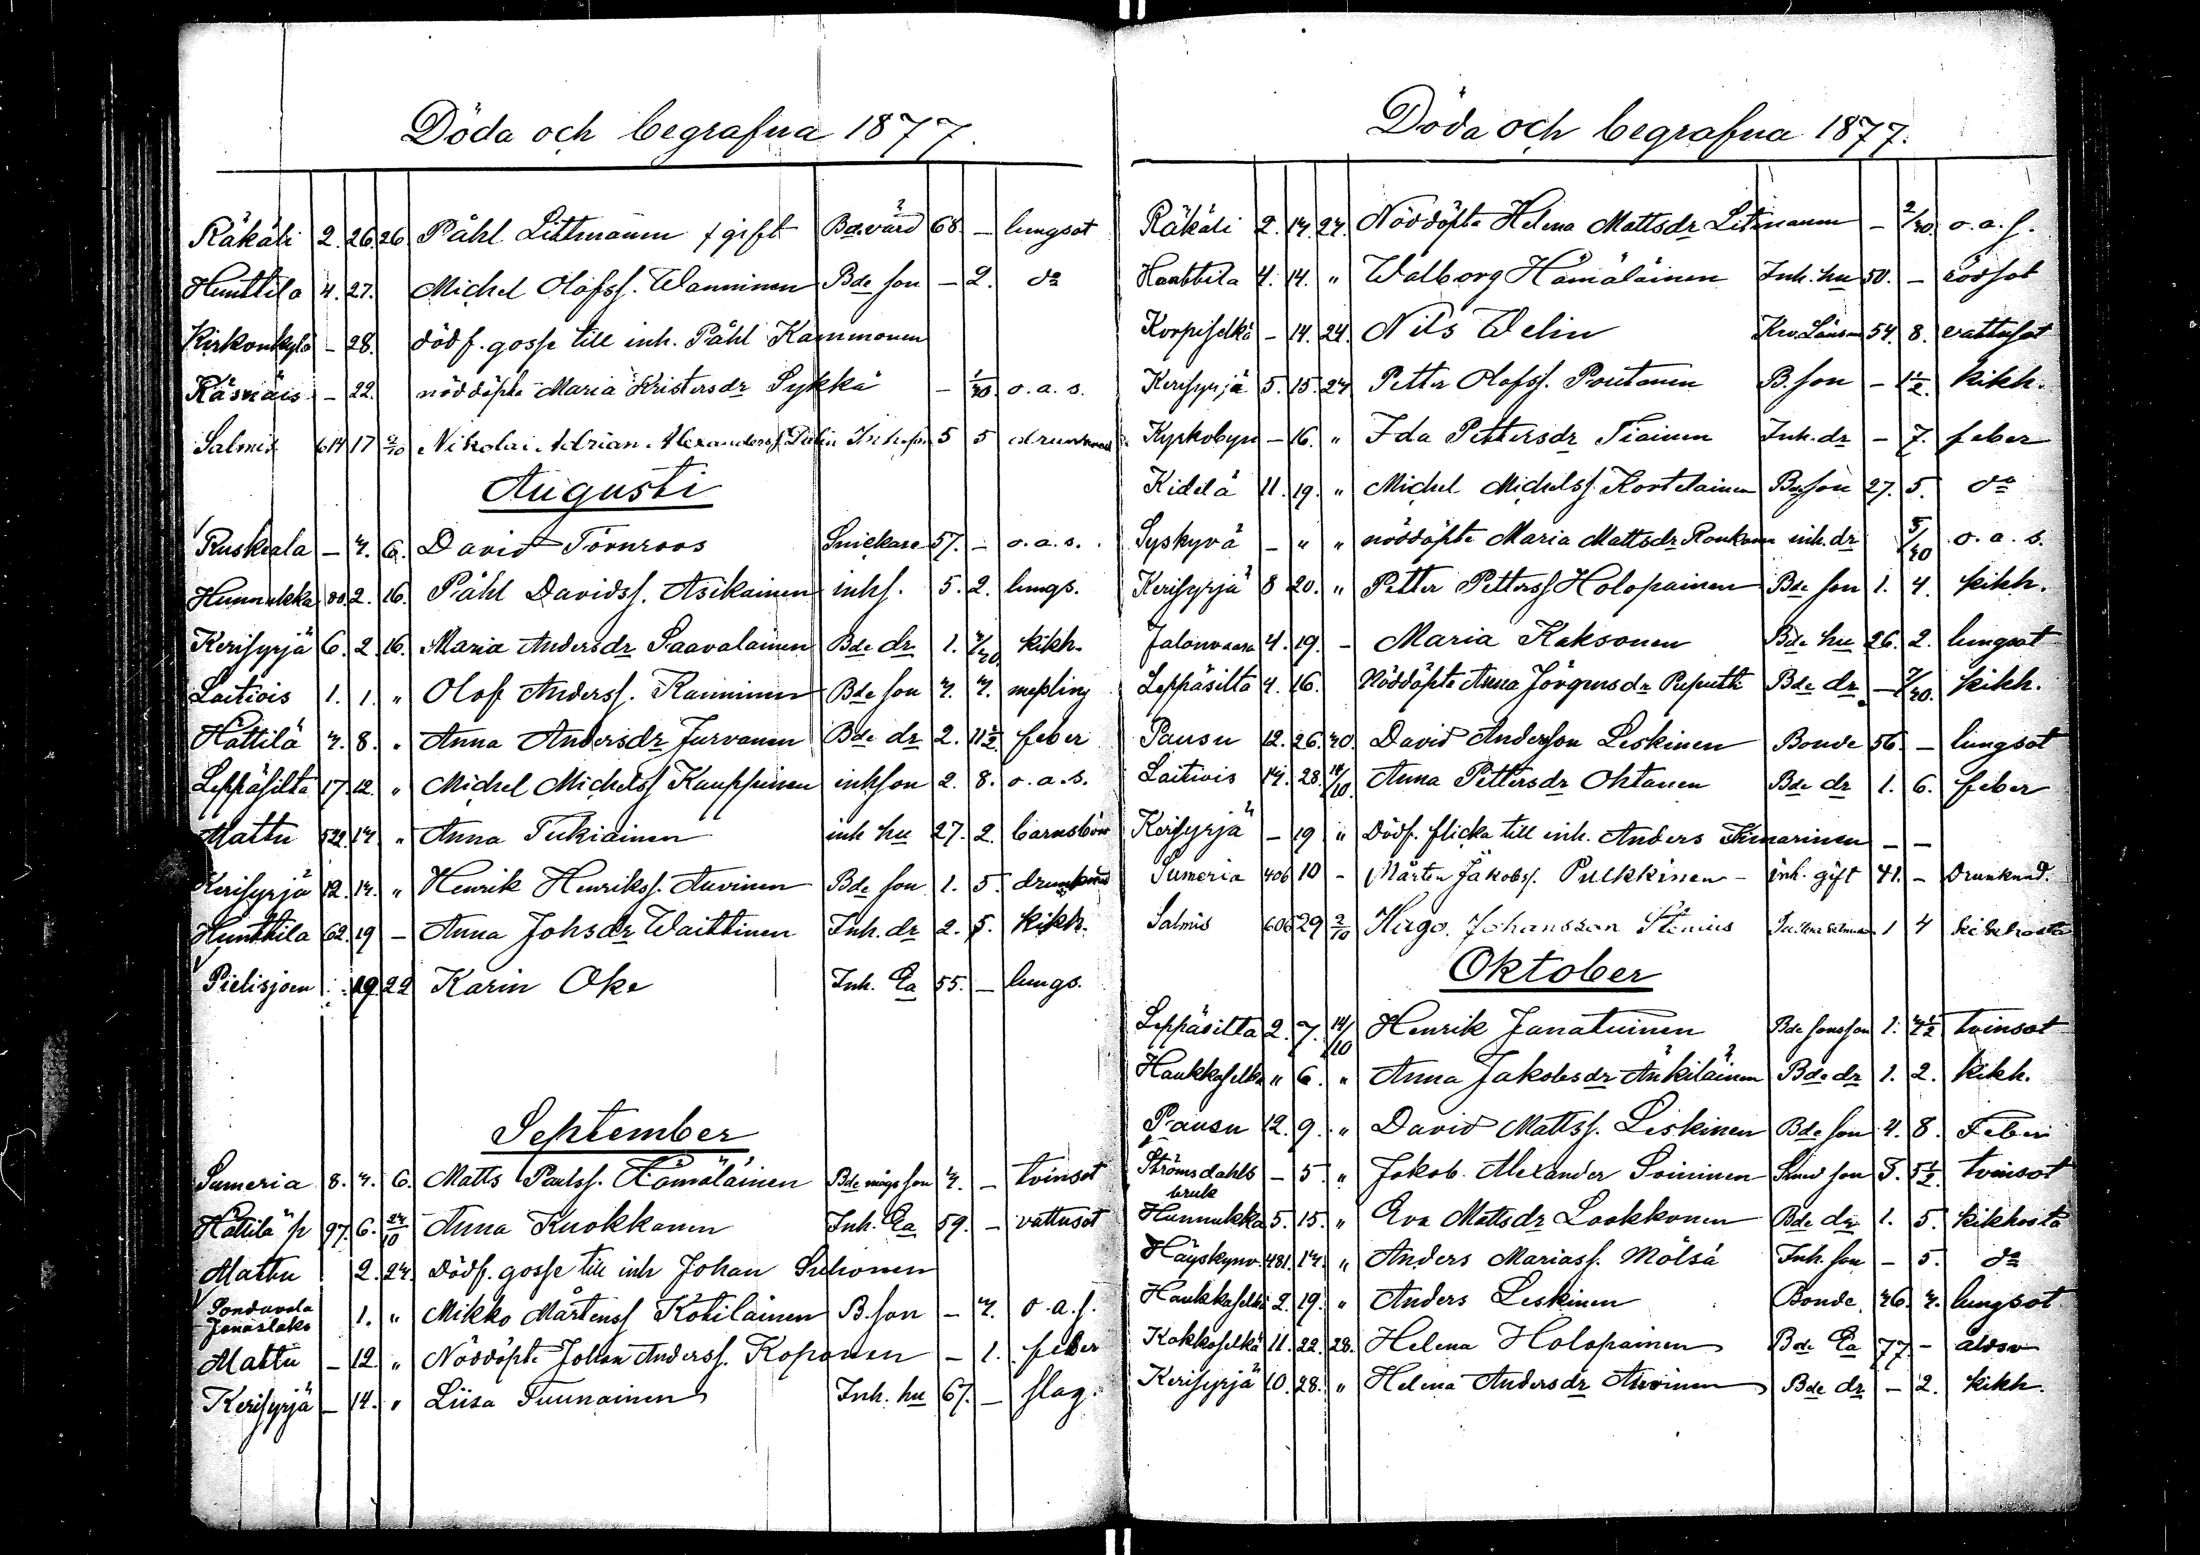 Döda och begrafna 1877.
Räkäli 2. 26. 26 Påhl Littmanen gift Bdevärd 68. – lungsot
Hunttila 4. 27. Michel Olofss. Wanninen Bde son – 2. do
Kirkonkylä – 28. död f. gosse till inh. Påhl Kammonen
Räsväis – 22. nöddöpte Maria Kristersdr Sykkä – 1/30 o. a. s.
Salmis 614 17 2/10 Nikolai Adrian Alexanderss. Inh. son 5 5
Augusti
Ruskeala – 4. 6. David Törnroos Snickare 57. – o. a. s.
Hunnukka 80. 2. 16. Påhl Davidss. Asikainen inhs. 5. 2. lungs.
Kerisyrjä 6. 2 16. Maria Andersdr Saavalainen Bde dr 1. 4/30 kikh.
Laitiois 1. 1. " Olof Anderss. Ranninen Bde son 4. 4. messling
Hättilä 4. 8. " Anna Andersdr Jurvanen Bde dr 2. 11½ feber
Leppäsilta 17. 12. " Michel Michelss Kauppinen inhson 2. 8. o. a. s.
Mattu 522. 14 " Anna Tukiainen inh hu 27. 2. barnsbörd
Kerisyrjä 12. 14. " Henrik Henrikss. Auvinen Bde son 1. 5.
Hunttila 62. 19 – Anna Johsdr Waittinen Inh. dr 2. 5. kikh.
Pielisjoen 19 22 Karin Oke Inh. Ea 55. – lungs.
September
Sumeria 8. 4. 6. Matts Paulss. Hämäläinen Bde mågs son 4. – tvinsot
Hättilä p 97. 6. 24/10 Anna Kuokkanen Inh. Ea 59. – vattusot
Mattu 2. 24 Dödf. gosse till inh Johan Suhonen
Jonaslaks 1. " Mikko Mårtenss Kotilainen B. son – 4. o. a. s.
Mattu – 12 " Nöddöpte Johan Anderss. Koponen – 1. feber
Kerisyrjä – 14. " Liisa Tuunainen Inh. hu 67. – slag.
Döda och begrafna 1877.
Räkäli 2. 14. 24. Nöddöpte Helena Mattsdr Litmanen – 2/30 o. a. s.
Hunttila 4. 14. " Walborg Hämäläinen Inh. hu 50. – rödsot
Korpiselkä – 14. 24. Nils Welin Kro. Länsm 54. 8. vattusot
Kerisyrjä 5. 15. 24 Petter Olofss. Poutanen B. son – 1½. kikh.
Kyrkobyn – 16. " Ida Pettersdr Tiainen Inh. dr – 7. feber
Kidelä 11. 19. " Michel Michelss. Kostelainen Bdeson 27. 5. do
Syskyvä – " " nöddöpte Maria Mattsdr Ronkonen inh. dr 5/30 o. a. s.
Kerisyrjä 8 20. " Petter Petterss Holopainen Bde son 1. 4. kikh.
Jalonvaara 4. 19. – Maria Kaksonen Bde hu 26. 2. lungsot
Leppäsilta 4. 16. Nöddöpte Anna Jörgensdr Puputti Bde dr – 7/30. kikh.
Pausu 12. 26. 30. David Andersson Leskinen Bonde 56. – lungsot
Laitiois 14. 28. 14/10. Anna Pettersdr Oktanen Bde dr 1. 6. feber
Kerisyrjä – 19 " Dödf. flicka till inh. Anders – –
Sumeria 406 10 – Mårten Jakobss. Pulkkinen – inh. gift 41. – Drunknad.
Salmis 606 29 2/10 Hugo Johansson Stenius 1 4 kikhosta
Oktober
Leppäsilta 2. 7. 14/10 Henrik Janatuinen Bde sonsson 1. 4½ tvinsot
Haukkaselkä " 6. " Anna Jakobsdr Änkiläinen Bde dr 1. 2. kikh.
Pausu 12. 9. " David Mattss. Leskinen Bde son 4. 8. Feber
Strömsdahls bruk – 5. " Jakob Alexander Soininen Smed son 3. 5½. tvinsot
Hunnukka 5. 15. " Eva Mattsdr Laakkonen Bde dr 1. 5. kikhosta
Häyskynv. 481. 14. " Anders Mariass. Mölsä Inh. son – 5. do
Haukkaselkä 2. 19. " Anders Leskinen Bonde 46. 4. lungsot
Kokkoselkä 11. 22. 28. Helena Holopainen Bde Ea 77 –
Kerisyrjä 10. 28. " Helena Andersdr Auvinen Bde dr – 2. kikh.